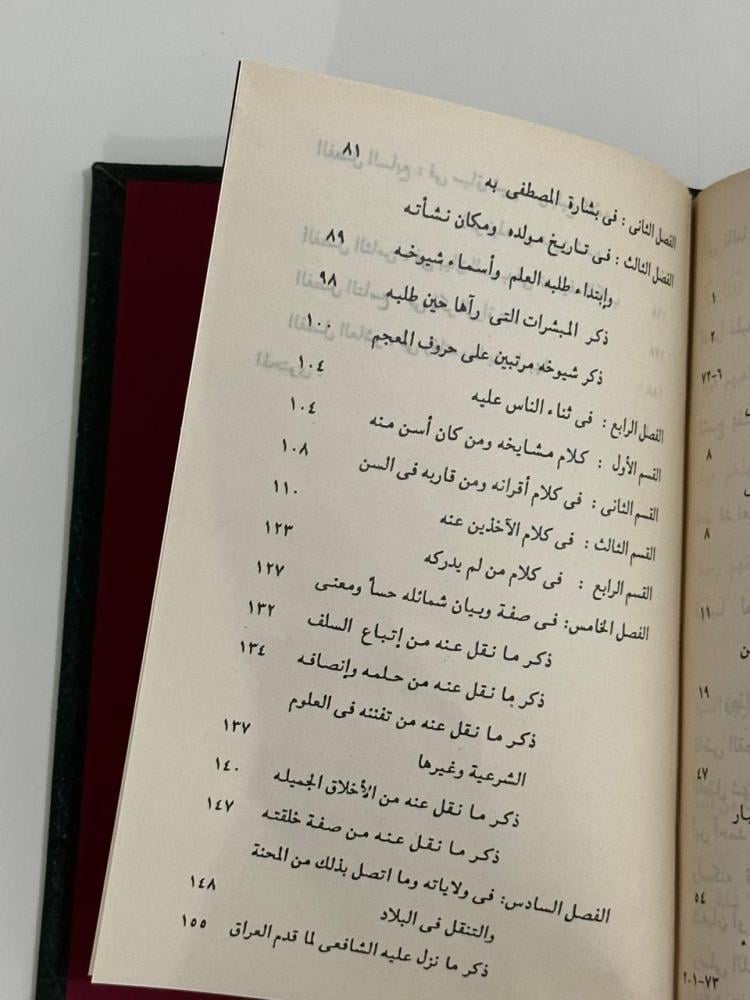 الفصل الثانى : فى بشارة المصطفى به ٨١
الفصل الثالث : فى تاريخ مولده ومكان نشأته
وإبتداء طلبه العلم وأسماء شيوخه ٨٩
ذكر المبشرات التى رآها حين طلبه ٩٨
ذكر شيوخه مرتبين على حروف المعجم ١٠٠
الفصل الرابع : فى ثناء الناس عليه ١٠٤
القسم الأول : كلام مشايخه ومن كان أسن منه ١٠٤
القسم الثانى : فى كلام أقرانه ومن قاربه فى السن ١٠٨
القسم الثالث : فى كلام الآخذين عنه ١١٠
القسم الرابع : فى كلام من لم يدركه ١٢٣
الفصل الخامس: فى صفة وبيان شمائله حسأ ومعنى ١٢٧
ذكر ما نقل عنه من إتباع السلف ١٣٢
ذكر ما نقل عنه من حلمه وإنصافه ١٣٤
ذكر ما نقل عنه من تفننه فى العلوم
الشرعية وغيرها ١٣٧
ذكر ما نقل عنه من الأخلاق الجميله ١٤٠
ذكر ما نقل عنه من صفة خلقته ١٤٧
الفصل السادس: فى ولاياته وما اتصل بذلك من المحنة
والتنقل فى البلاد ١٤٨
ذكر ما نزل عليه الشافعى لما قدم العراق ١٥٥
١
٢
٦-٧٢
٨
٨
١١
١٩
٤٧
٥٤
٧٣-٢٠١